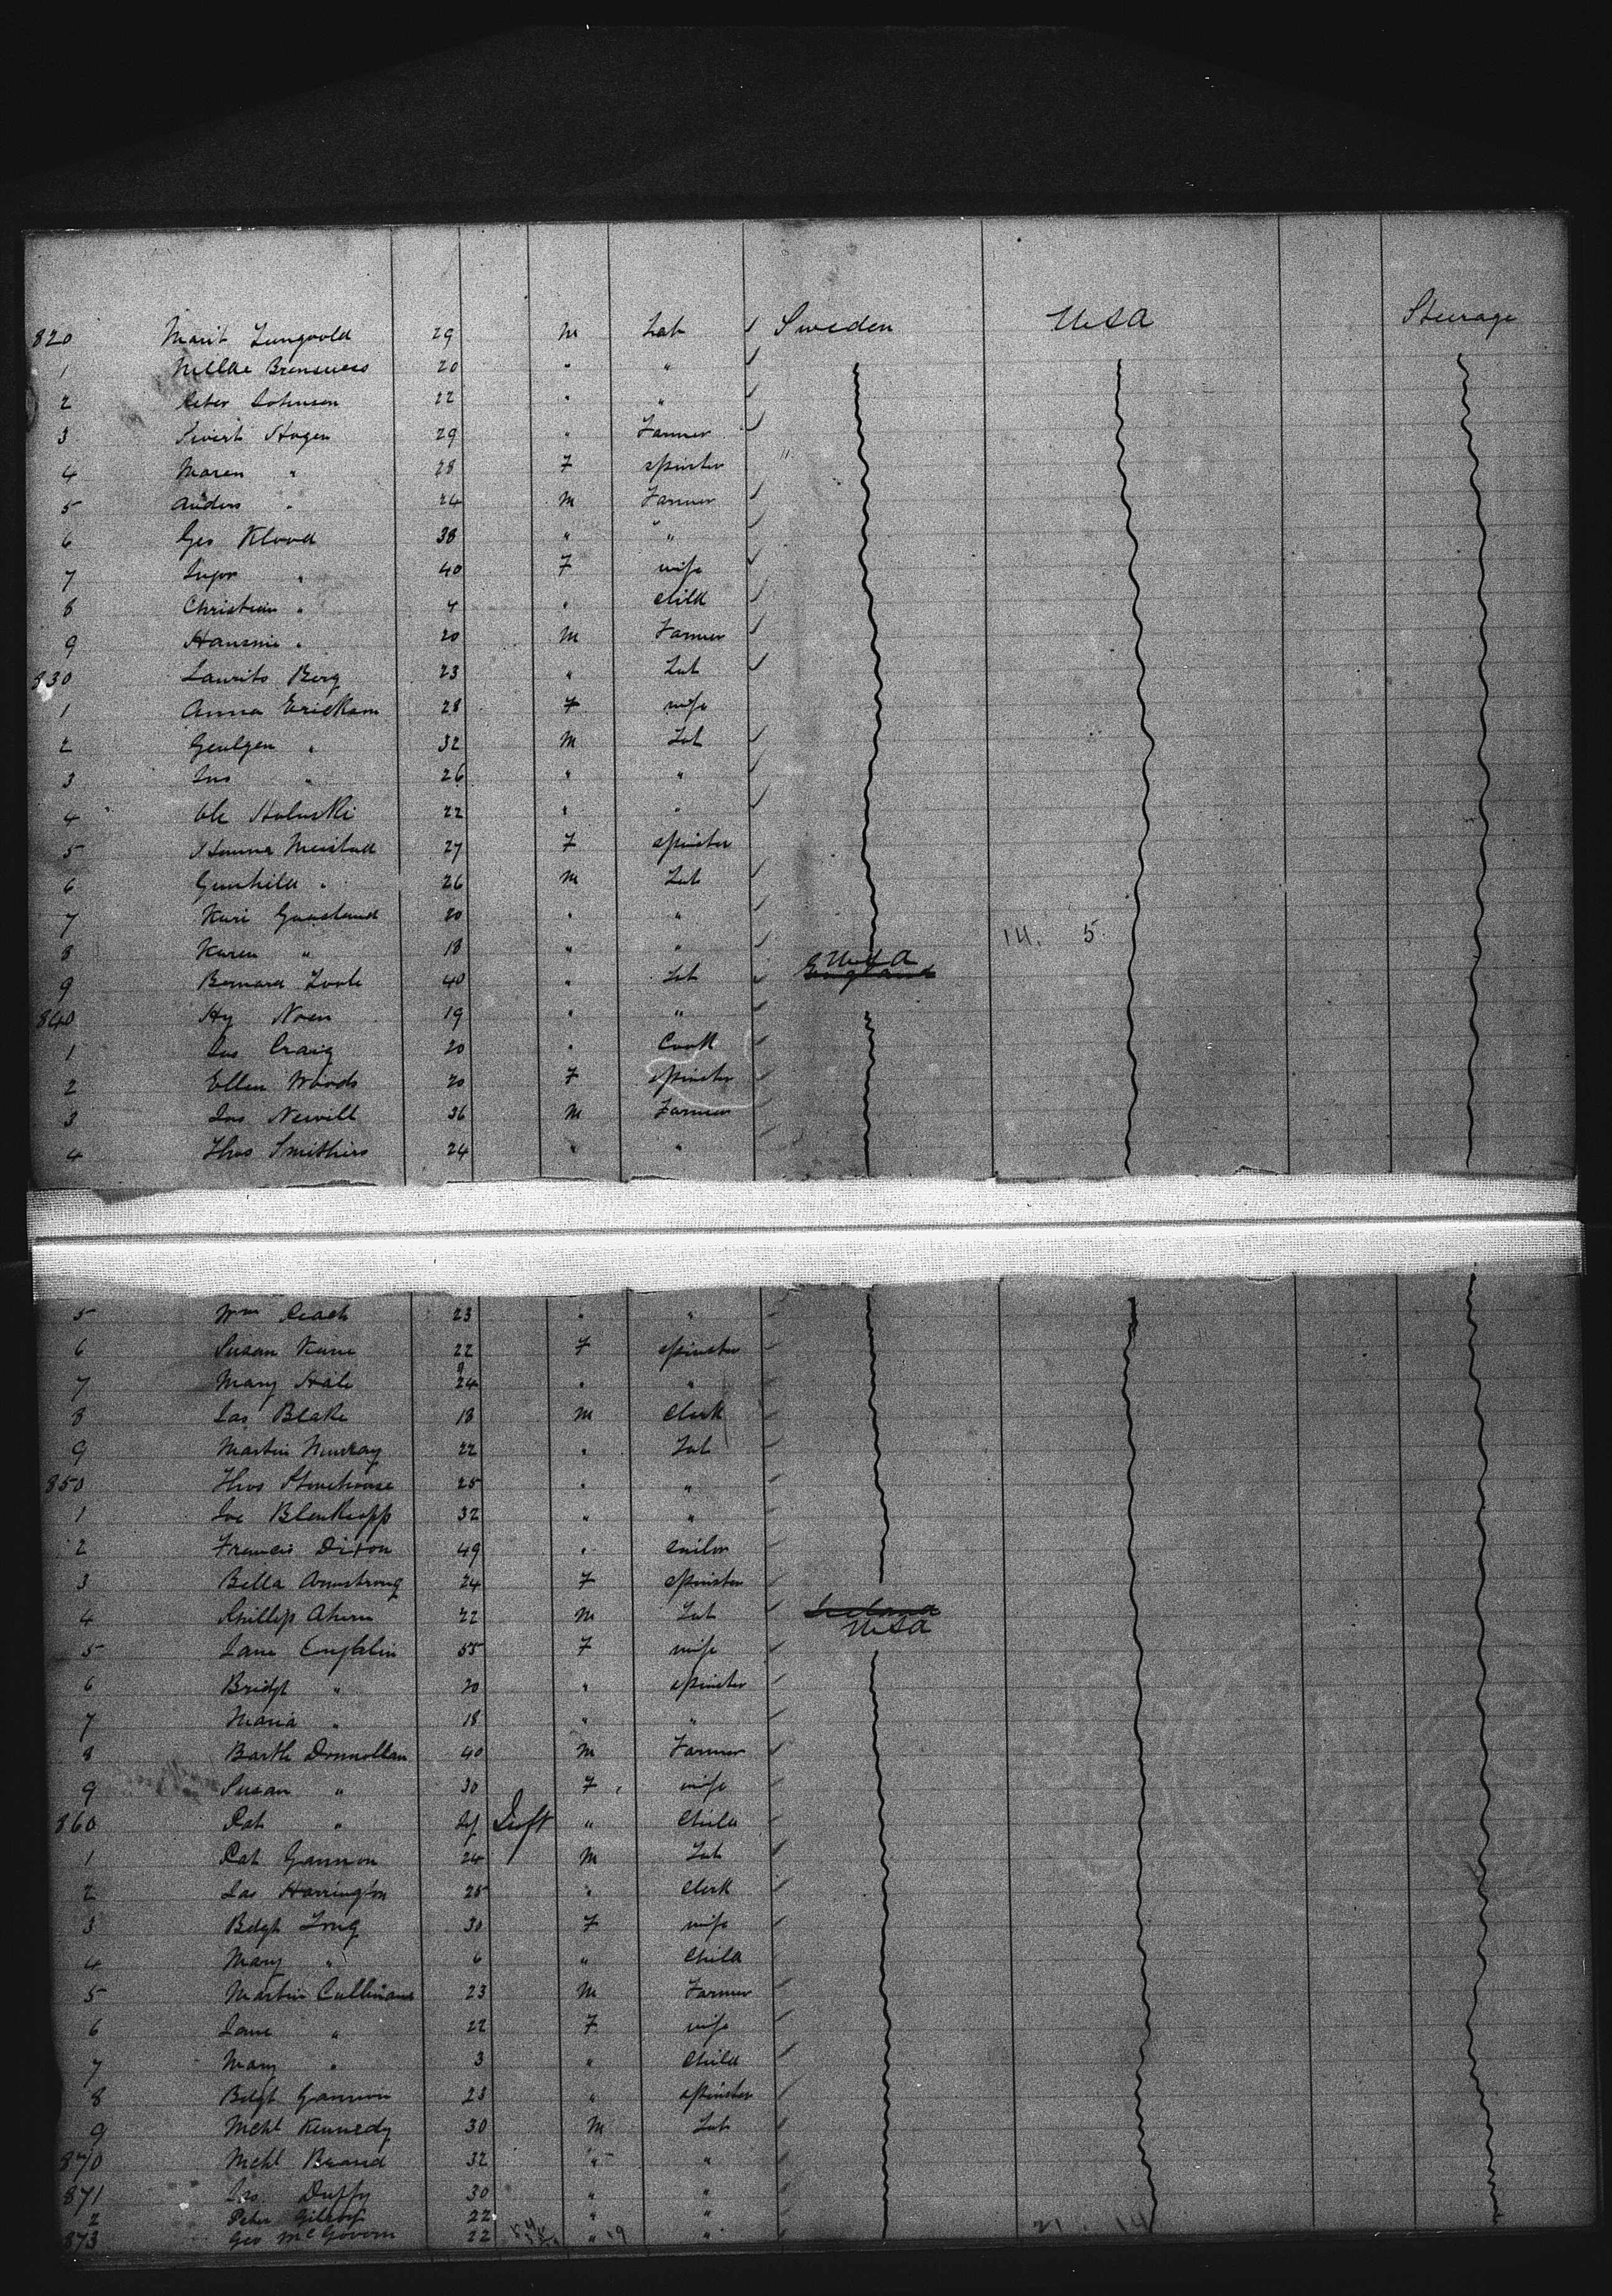 820 Marit Lungvold 29 M Lab ✓ Sweden USA Steerage
1 20 " " ✓
2 Peter Johnson 22 " " ✓
3 Sivert Hagen 29 " Farmer ✓
4 Maren " 28 F spinster "
5 Anders " 24 M Farmer ✓
6 Geo Klovd 38 " " ✓
7 40 F wife ✓
8 Christian " 4 " child ✓
9 " 20 M Farmer ✓
830 Laurits Berg 23 " Lab ✓
1 Anna Erickson 28 F wife
2 " 32 M Lab ✓
3 Jno " 26 " " ✓
4 Ole 22 " " ✓
5 Hanna 27 F spinster
6 Gunhild " 26 M Lab ✓
7 Kari Gaasland 20 " " ✓
8 Karen " 18 " " ✓ 14. 5.
9 Bernard Toole 40 " Lab ✓ England USA
840 Hy 19 " " ✓
1 Jas Craig 20 " Cook ✓
2 Ellen Woods 20 F spinster ✓
3 Jas Newell 36 M Farmer ✓
4 Thos Smithers 24 " " ✓
5 Wm Peach 23 " " ✓
6 Susan Kane 22 F spinster ✓
7 Mary Hale 24 " " ✓
8 Jas Blake 18 M Clerk ✓
9 Martin Murray 22 " Lab ✓
850 Thos Stonehouse 25 " " ✓
1 Joe Blenkopp 32 " " ✓
2 Francis Dixon 49 " sailor ✓
3 Bella Armstrong 24 F spinster ✓
4 Phillip Ahern 22 M Lab ✓ Ireland USA
5 Jane Coughlin 55 F wife ✓
6 Bridgt " 20 " spinster ✓
7 Maria " 18 " " ✓
8 Barth Donnollan 40 M Farmer ✓
9 Susan " 30 F wife ✓
860 Pat " Inft " Child ✓
1 Pat Gannon 24 M Lab ✓
2 Jas Harrington 25 " Clerk ✓
3 Bdgt Long 30 F wife ✓
4 Mary " 6 " Child ✓
5 Martin Cullinane 23 M Farmer ✓
6 Jane " 22 F wife ✓
7 Mary " 3 " Child ✓
8 Bdgt Gannon 23 " spinster ✓
9 Mchl Kennedy 30 M Lab ✓
870 Mchl 32 " " ✓
871 Jas Duffy 30 " " ✓
2 Peter 22 " " ✓
873 Geo McGovern 22 " 19 " 21. 14